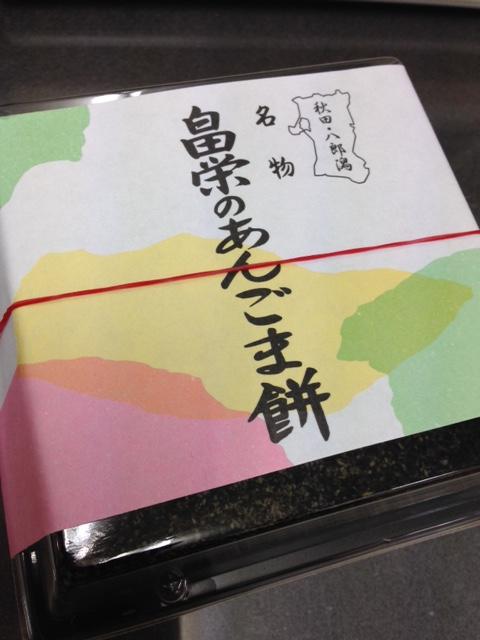 秋田・八郎潟
名物
畠栄のあんごま餅